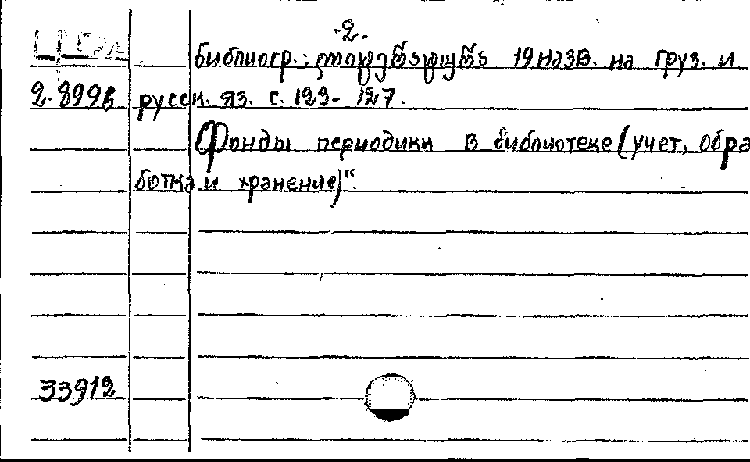 -2.
библиогр.: ლიტერატურა 19 назв. на груз. и
2.899в русск. яз. с. 123-127.
Фонды периодики в библиотеке (учет, обра
ботка и хранение)".
33912